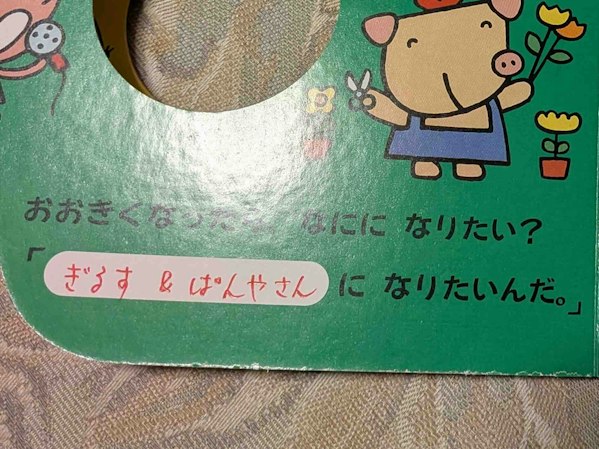 おおきくなったら なにに なりたい?
「ぎるす & ぱんやさん に なりたいんだ。」